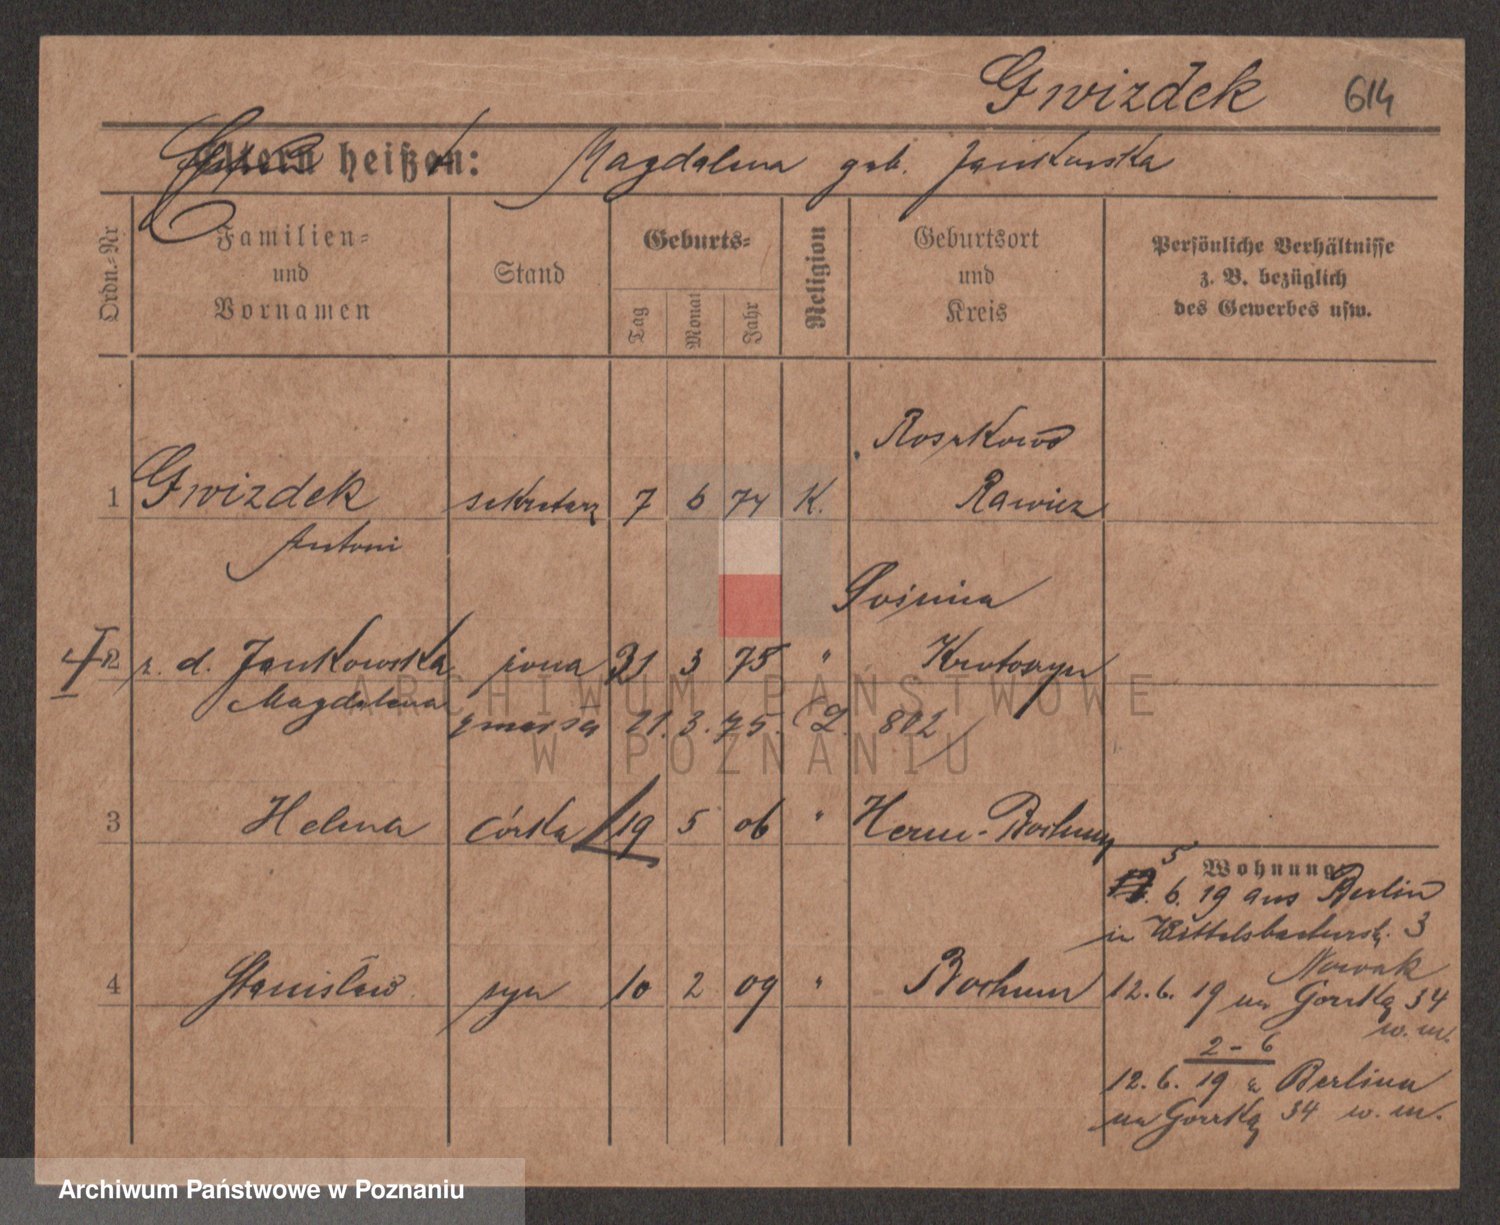 Gwizdek 614
Eltern heißen: Magdalena geb. Jankowska
Ordn.-Nr
Familien-
und
Vornamen
Stand
Geburts-
Tag
Monat
Jahr
Religion
Geburtsort
und
Kreis
Persönliche Verhältnisse
z. B. bezüglich
des Gewerbes usw.
Roszkowo
1 Gwizdek sekretarz 7 6 74 K. Rawicz
Antoni
2 z. d. Jankowska żona 21 3 75 " Krotoszyn
Magdalena zmarła 21. 3. 75. 802
3 Helena córka 19 5 06 " Herne-Bochum
Wohnung
5. 6. 19 aus Berlin
in Wittelsbacherstr. 3
Nowak
4 Stanisław syn 10 2 09 " Bochum
12. 6. 19 na Górną 34
w. m.
2 - 6
12. 6. 19 z Berlina
na Górną 34 w. m.
ARCHIWUM PAŃSTWOWE
W POZNANIU
Archiwum Państwowe w Poznaniu